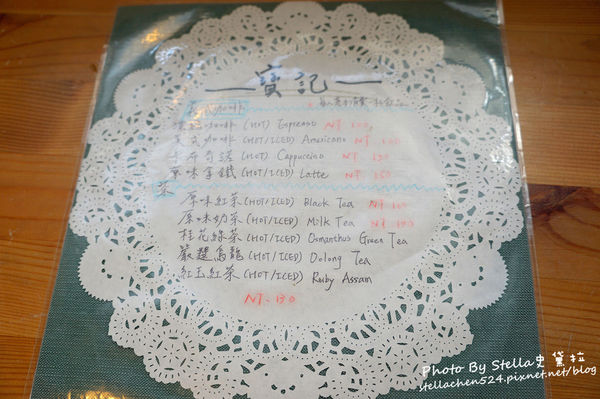 — 寶記 —
咖啡
咖啡 (HOT) Espresso NT 100
美式咖啡 (HOT/ICED) Americano NT 100
卡布奇諾 (HOT) Cappuccino NT 130
原味拿鐵 (HOT/ICED) Latte NT 130
茶
原味紅茶 (HOT/ICED) Black Tea NT 100
原味奶茶 (HOT/ICED) Milk Tea NT
桂花綠茶 (HOT/ICED) Osmanthus Green Tea
嚴選烏龍 (HOT/ICED) Oolong Tea
紅玉紅茶 (HOT/ICED) Ruby Assam
NT. 130
Photo By Stella史黛拉
stellachen524.pixnet.net/blog